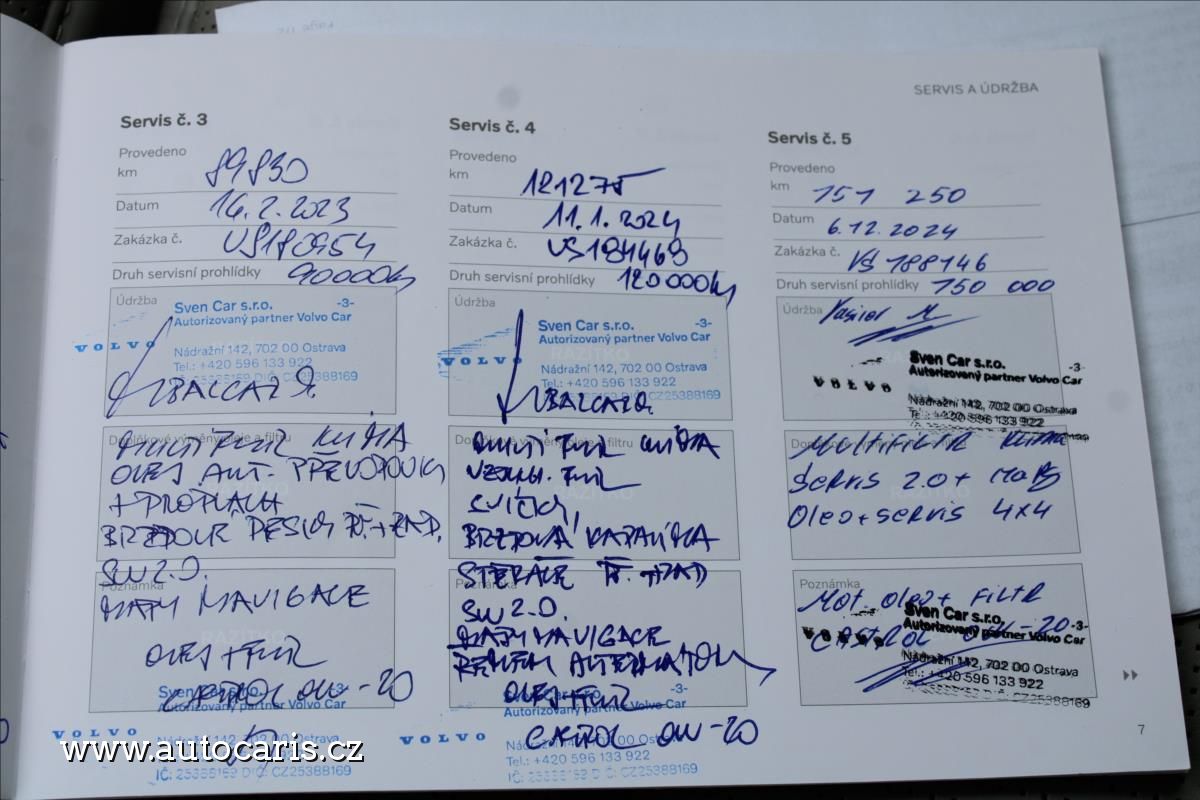 SERVIS A ÚDRŽBA
Servis č. 3
Provedeno
km 89830
Datum 16.2.2023
Zakázka č. VS180954
Druh servisní prohlídky 90000km
Údržba
Sven Car s.r.o. -3-
Autorizovaný partner Volvo Car
VOLVO
Nádražní 142, 702 00 Ostrava
Tel.: +420 596 133 922
IČ: 25388169 DIČ: CZ25388169
Doplňkové výměny oleje a filtru
MULTIFILTR KLIMA
OLEJ AUT. PŘEVODOVKY
+ PROPLACH
BRZDOVÉ DESKY PŘ.+ZAD.
SW 2.0.
Poznámka
MAPY NAVIGACE
OLEJ + FILTR
CASTROL 0W-20
Sven Car s.r.o.
Autorizovaný partner Volvo Car
VOLVO
IČ: 25388169 DIČ: CZ25388169
Servis č. 4
Provedeno
km 121275
Datum 11.1.2024
Zakázka č. VS184469
Druh servisní prohlídky 120000km
Údržba
Sven Car s.r.o. -3-
Autorizovaný partner Volvo Car
VOLVO
RAZÍTKO
Nádražní 142, 702 00 Ostrava
Tel.: +420 596 133 922
CZ25388169
MULTIFILTR KLIMA
VZDUCH. FILTR
SVÍČKY,
BRZDOVÁ KAPALINA
STĚRAČE PŘ.+ZAD
Poznámka
SW 2.0.
MAPY NAVIGACE
ŘEMEN ALTERNÁTORU
OLEJ+FILTR
-3-
Autorizovaný partner Volvo Car
CASTROL 0W-20
VOLVO
Nádražní 142, 702 00 Ostrava
Tel.: +420 596 133 922
IČ: 25388169 DIČ: CZ25388169
Servis č. 5
Provedeno
km 151 250
Datum 6.12.2024
Zakázka č. VS 188146
Druh servisní prohlídky 150 000
Údržba
Sven Car s.r.o. -3-
Autorizovaný partner Volvo Car
VOLVO
Nádražní 142, 702 00 Ostrava
Tel.: +420 596 133 922
MULTIFILTR KLIMA
SERVIS 2.0 + MAPY
RAZÍTKO
OLEO + SERVIS 4X4
Poznámka
MOT. OLEO + FILTR
Sven Car s.r.o. -3-
Autorizovaný partner Volvo Car
VOLVO
CASTROL 0W-20
Nádražní 142, 702 00 Ostrava
Tel.: +420 596 133 922
IČ: 25388169 DIČ: CZ25388169
7
www.autocaris.cz